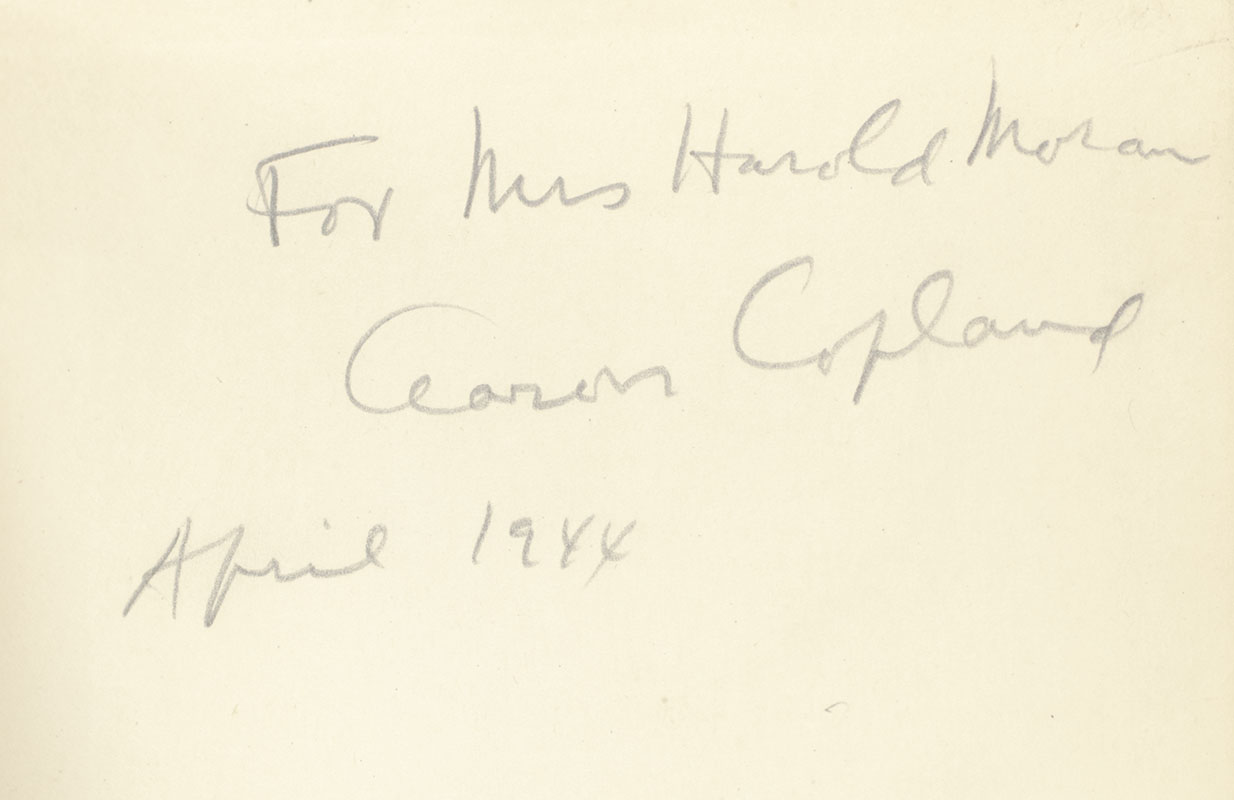 For Mrs Harold Moran
Aaron Copland
April 1944